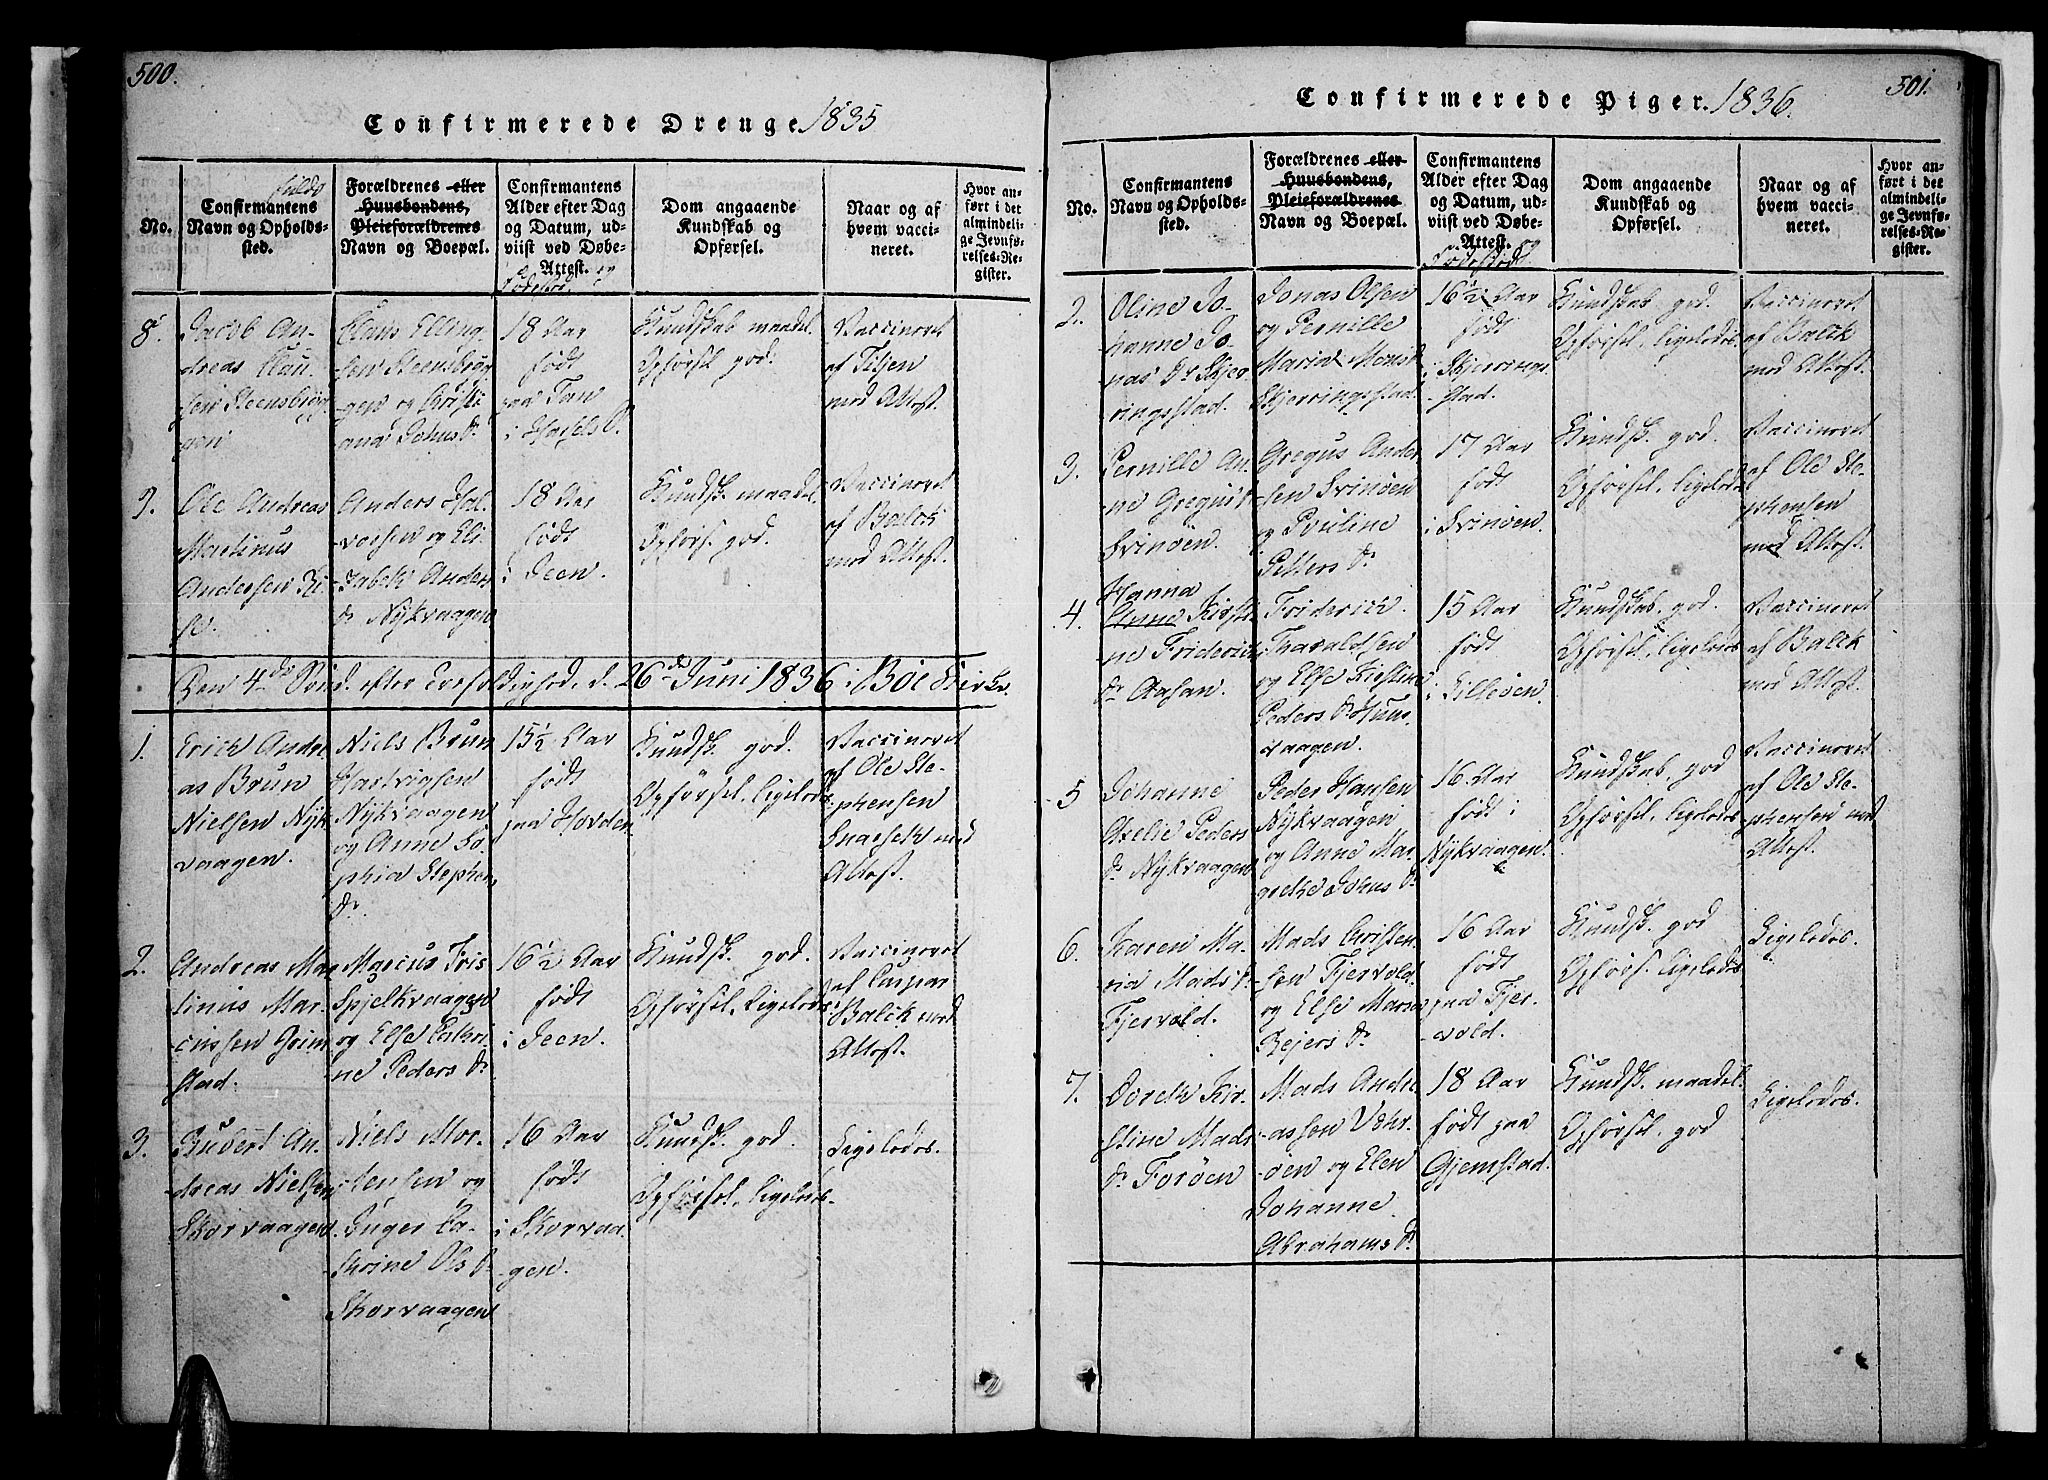 500.
Confirmerede Drenge 1835
No.
fulde
Confirmantens
Navn og Opholds-
sted.
Forældrenes eller
Huusbondens,
Pleieforældrenes
Navn og Boepæl.
Confirmantens
Alder efter Dag
og Datum, ud-
viist ved Døbe-
Attest. og
Fødested.
Dom angaaende
Kundskab og
Opførsel.
Naar og af
hvem vacci-
neret.
Hvor an-
ført i det
almindeli-
ge Jevnfø-
relses-Re-
gister.
8.
Jacob An-
dreas Clau-
sen Steensbrog-
gen
Claus Elling-
sen Steensbrog-
gen og Christi-
ana Johns Dr.
18 Aar
født
paa Tan
i Hassels
Kundskab maadel.
Opførsl god.
Vaccineret
af Tilsen
med Attest.
9.
Ole Andreas
Martinus
Andersen
Anders Hal-
vorsen og Eli-
sabeth Anders
Dr Nykvaagen
18 Aar
født
i Jeen.
Kundsk. maadel.
Opførs. god.
Vaccineret
af Balch
med Attest.
Den 4de Sønd. efter Trefoldighed, d. 26de Juni 1836 i Bøe
1.
Erich Andre-
as Brun
Nielsen Nyk-
vaagen.
Niels Brun
Hartvigsen
Nykvaagen
og Anne So-
phia Stephens
Dr.
15½ Aar
født
paa Hovden
Kundsk. god.
Opførsel, ligeledes
Vaccineret
af Ole Ste-
phensen
med
Attest.
2.
Andreas Mar-
tinus Mar-
cussen Grim-
stad.
Marcus Friis
Spjelkvaagen
og Else Cathri-
ne Peders Dr
16½ Aar
født
i Jeen.
Kundsk. god.
Opførsel, ligeledes
Vaccineret
af Caspar
Balch med
Attest.
3.
Rubert An-
dreas Nielsen
Skorvaagen
Niels Mor-
tensen og
Inger Ca-
thrine Ols Dr
Skorvaagen
16 Aar
født
i Skorvaa-
gen.
Kundsk. god.
Opførsel, ligeledes.
Ligeledes.
501.
Confirmerede Piger. 1836.
No.
Confirmantens
Navn og Opholds-
sted.
Forældrenes eller
Huusbondens,
Pleieforældrenes
Navn og Boepæl.
Confirmantens
Alder efter Dag
og Datum, ud-
viist ved Døbe-
Attest. og
Fødested
Dom angaaende
Kundskab og
Opførsel.
Naar og af
hvem vacci-
neret.
Hvor an-
ført i det
almindeli-
ge Jevnfø-
relses-Re-
gister.
2.
Oline Jo-
hanne Jo-
nas Dr Skjer-
ringstad.
Jonas Olsen
og Pernille
Maria
Skjerringstad.
16½ Aar
født
i Skjerring-
stad.
Kundskab god.
Opførsel, ligeledes.
Vaccineret
af Balch
med Attest.
3.
Pernille An-
ne Gregus Dr
Svinøen.
Gregus Ander-
sen Svinøen
og Pouline
Petters Dr
17 Aar
født
i Svinøen.
Kundsk. god.
Opførsel, ligeledes
Vaccineret
af Ole Ste-
phensen
med Attest.
4.
Hanna
Anne Kirsti-
ne Friderich
Dr Aasan.
Friderich
Tharaldsen
og Else Kirstine
Peders Dr Huus-
vaagen.
15 Aar
født
i Gilleøen.
Kundskab, god.
Opførsel, ligeledes
Vaccineret
af Balch
med Attest.
5
Johanne
Axelie Peders
Dr Nykvaagen
Peder Hansen
Nykvaagen
og Anne Mar-
grethe Johns Dr
16 Aar
født i
Nykvaagen.
Kundskab, god
Opførsel, ligeledes
Vaccineret
af Ole Ste-
phensen med
Attest.
6.
Karen Ma-
ria Mads Dr
Fjervold.
Mads Christen-
sen Fjervold
og Else Maria
Rejers Dr
16 Aar
født
paa Fjer-
vold.
Kundsk. god
Opførs. ligeledes
Ligeledes.
7.
Doreth Kir-
stine Mads
Dr Forøen
Mads Andre-
assen Vehr-
øen og Elen
Johanne
Abrahams Dr
18 Aar
født paa
Gjemstad.
Kundsk. maadel.
Opførsel, god
Ligeledes.